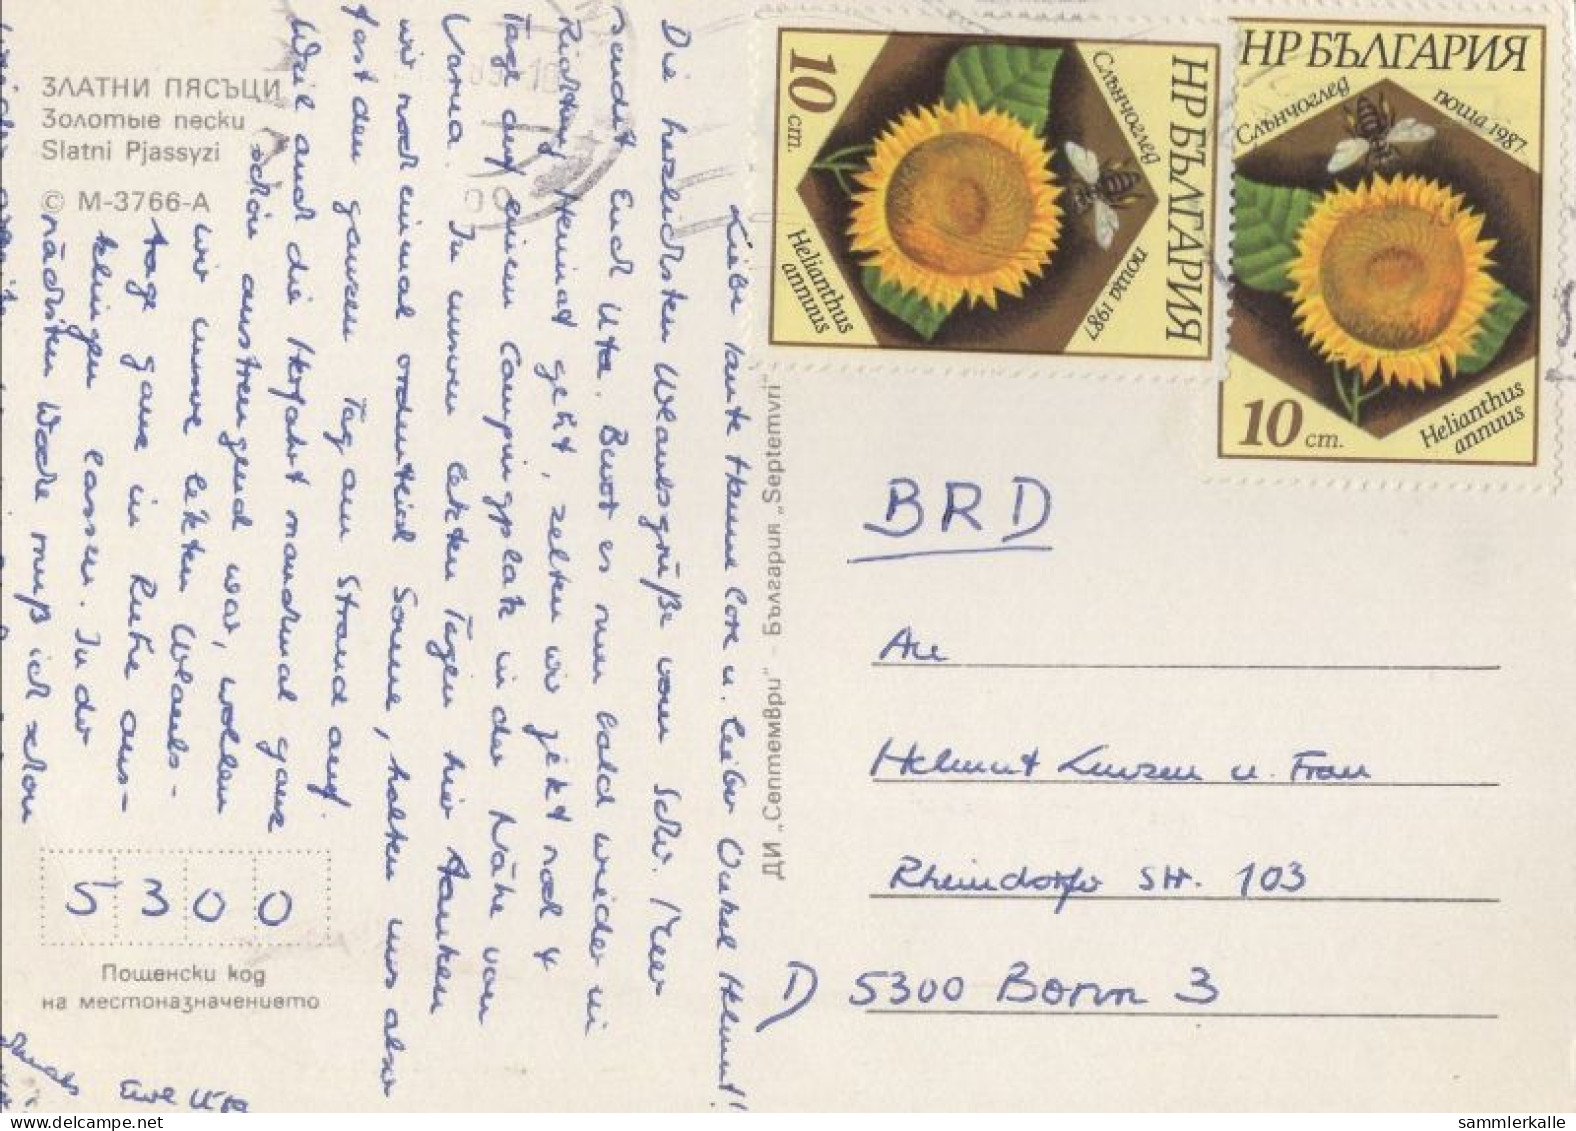 ЗЛАТНИ ПЯСЪЦИ
Золотые пески
Slatni Pjassyzi
© М-3766-А
Liebe Tante Hanne Lore u. lieber Onkel Helmut!
Die herzlichsten Urlaubsgrüße vom Schw. Meer
sendet Euch Uta. Bevor es nun bald wieder in
Richtung Heimat geht, zelten wir jetzt noch 4
Tage auf einem Campingplatz in der Nähe von
Varna. In unseren letzten Tagen hier tanken
wir noch einmal ordentlich Sonne, halten uns also
fast den ganzen Tag am Strand auf.
Weil auch die Herfahrt manchmal ganz
schön anstrengend war, wollen
wir unsre letzten Urlaubs-
tage ganz in Ruhe aus-
klingen lassen. In der
nächsten Woche muß ich schon
Eure Uta
5 3 0 0
Пощенски код
на местоназначението
ДИ „Септември" - България „Septemvri"
10 ст.
Слънчоглед
НР БЪЛГАРИЯ
Helianthus
annuus
поща 1987
НР БЪЛГАРИЯ
Слънчоглед
поща 1987
10 ст.
Helianthus
annuus
BRD
An
Helmut Lenzen u. Frau
Rheindorfer Str. 103
D 5300 Bonn 3
sammlerkalle